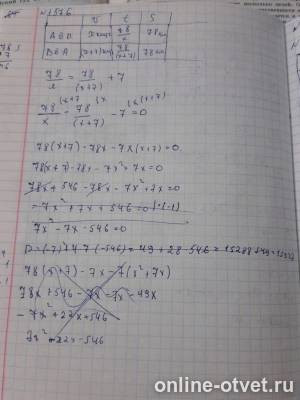 №1576
v t S
А в В x км/ч 78/x 78 км
В в А (x+7) км/ч 78/(x+7) 78 км
78/x = 78/(x+7) + 7
78/x - 78/(x+7) - 7 = 0
78(x+7) - 78x - 7x(x+7) = 0
78(x+7) - 78x - 7x² + 7x = 0
78x + 546 - 78x - 7x² + 7x = 0
-7x² + 7x + 546 = 0 |·(-1)
7x² - 7x - 546 = 0
78(x+7) - 7x - 7(x²+7x)
78x + 546 - 7x - 7x - 49x
- 7x² + 22x + 546
7x² - 22x - 546
online-otvet.ru